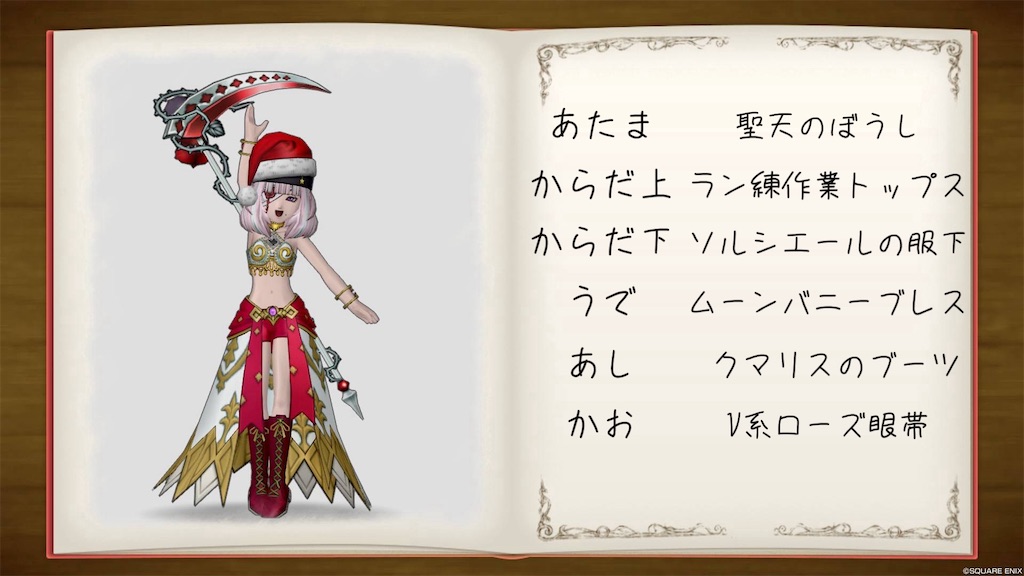 あたま 聖天のぼうし
からだ上 ラン練作業トップス
からだ下 ソルシエールの服下
うで ムーンバニーブレス
あし クマリスのブーツ
かお V系ローズ眼帯
©SQUARE ENIX